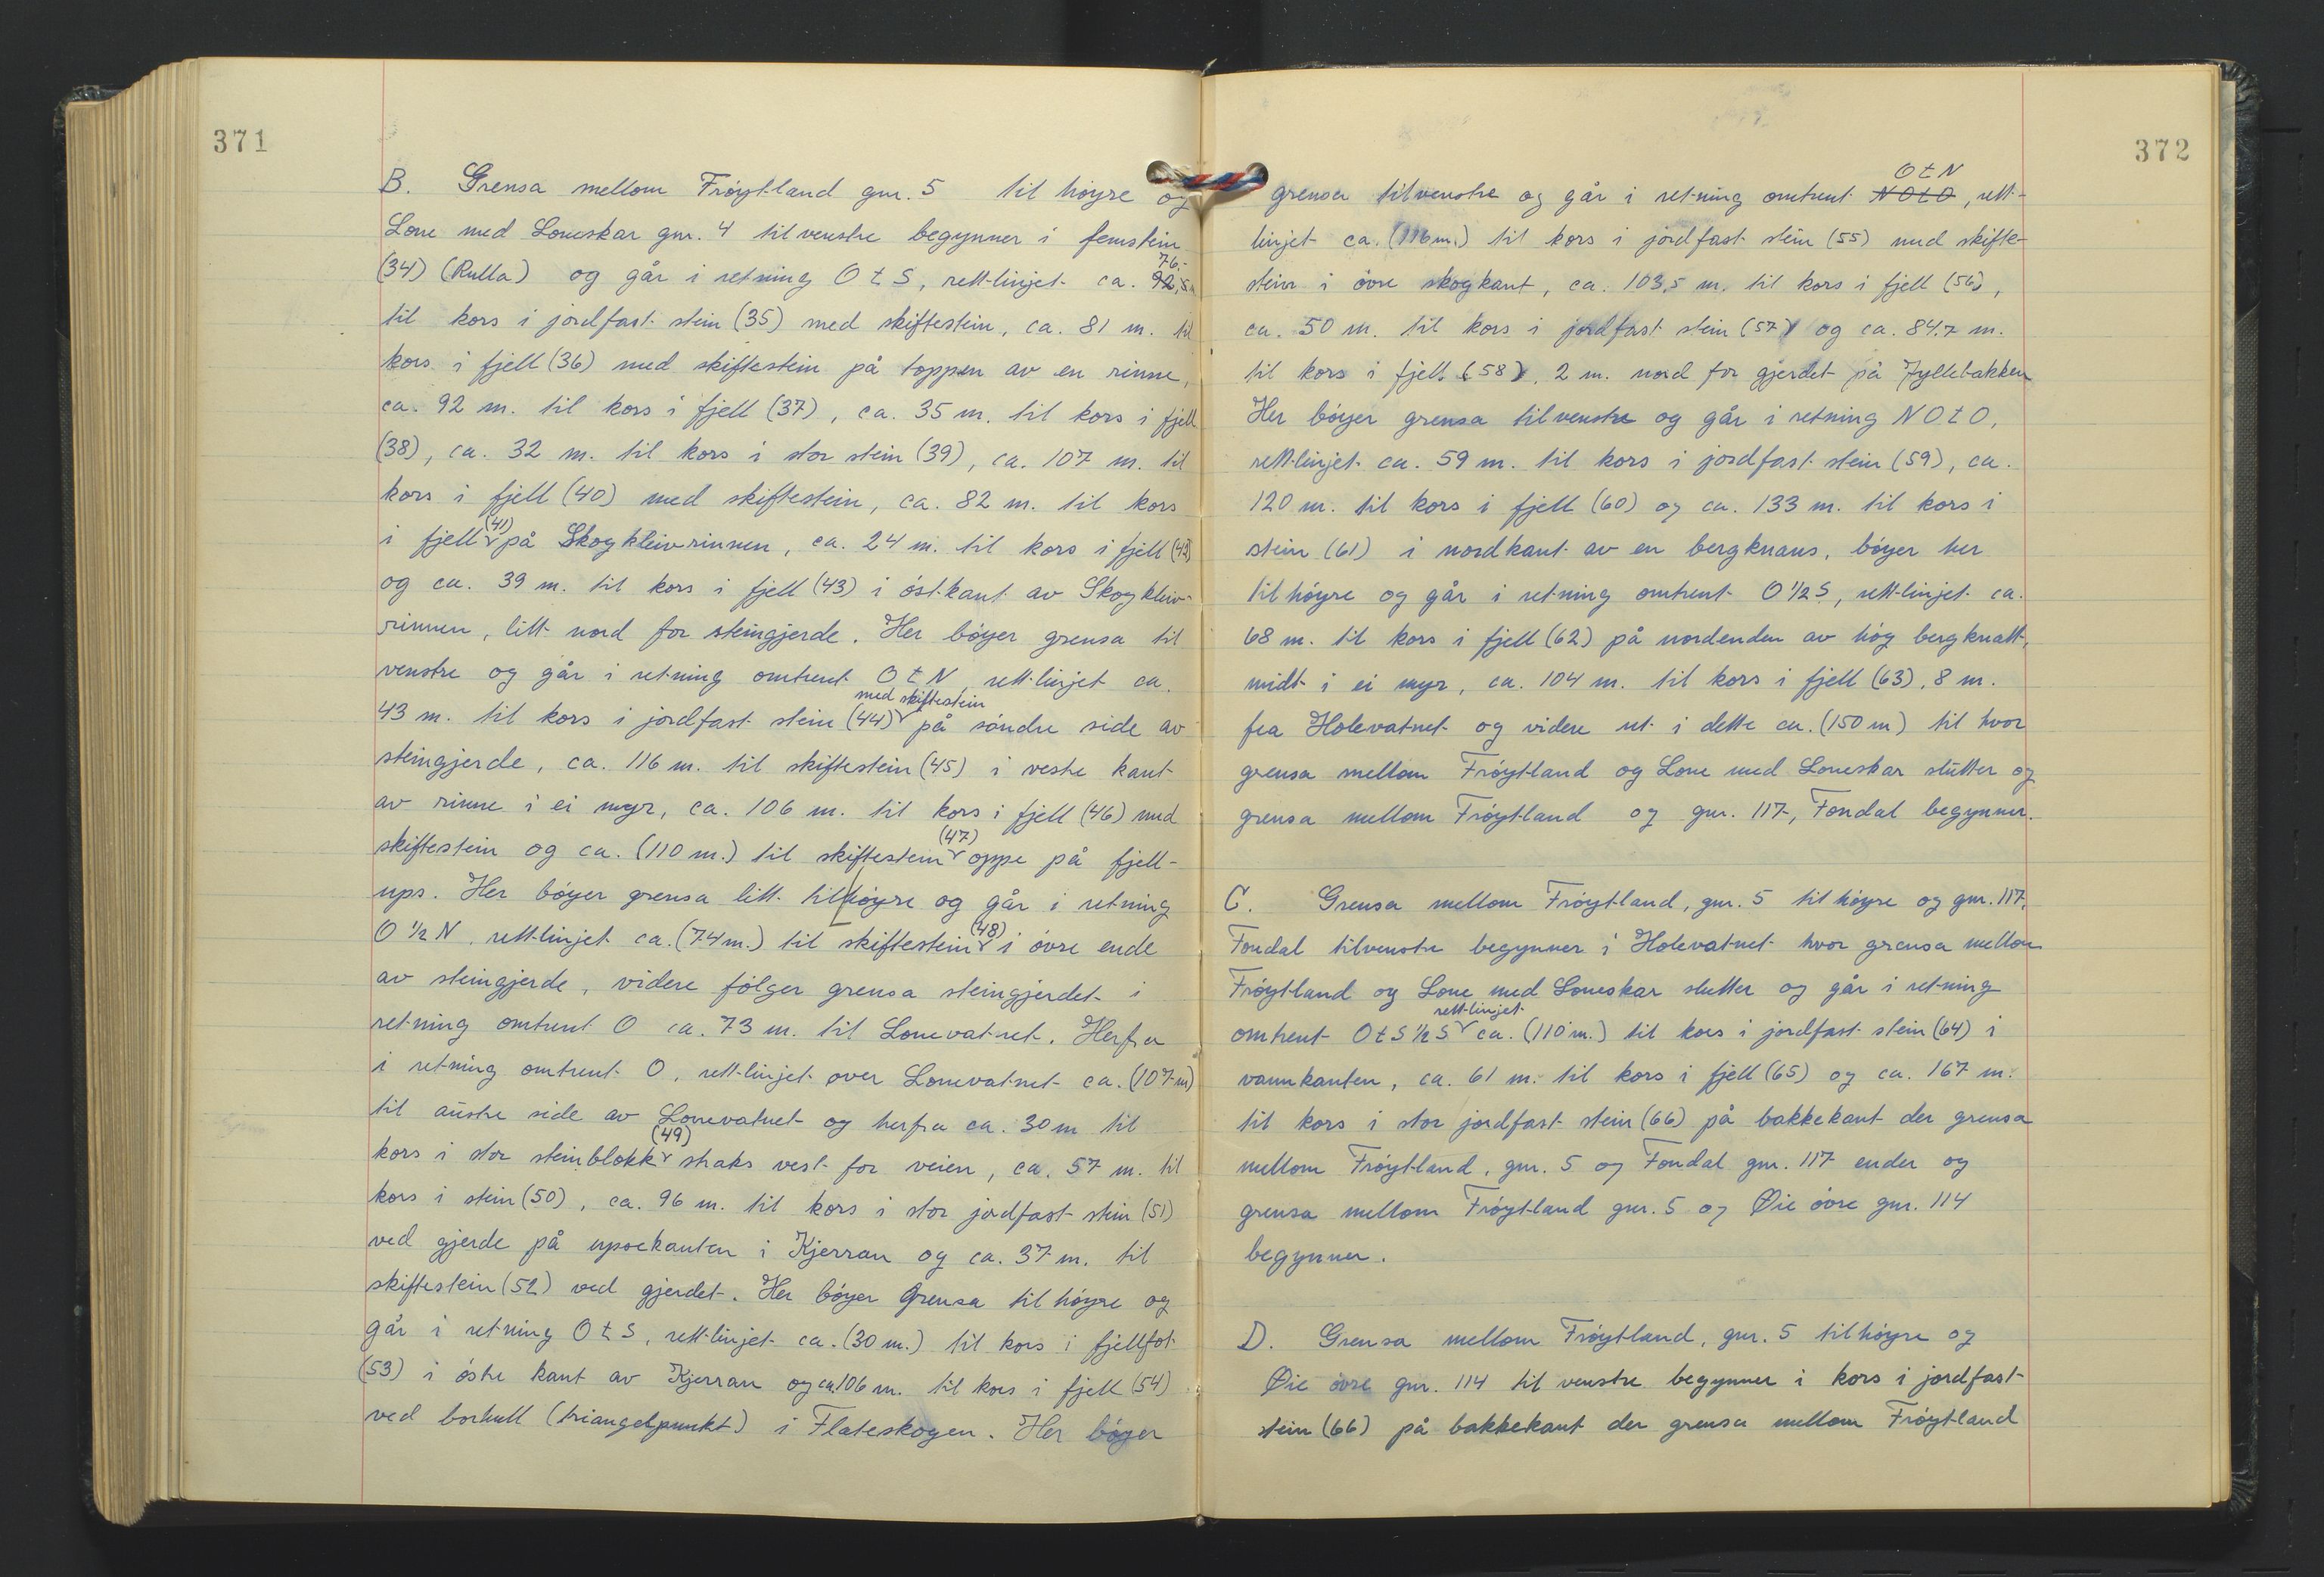 371
B. Grensa mellom Frøytland gnr. 5 til høyre og
Lone med Loneskar gnr. 4 til venstre begynner i femstein
76,-
(34) (Rulla) og går i retning O t S, rett-linjet ca. 92,5m
til kors i jordfast stein (35) med skiftestein, ca. 81 m. til
kors i fjell (36) med skiftestein på toppen av en rinne,
ca. 92 m. til kors i fjell (37), ca. 35 m. til kors i fjell
(38), ca. 32 m. til kors i stor stein (39), ca. 107 m. til
kors i fjell (40) med skiftestein, ca. 82 m. til kors
i fjell (41) på Skogkleivrinnen, ca. 24 m. til kors i fjell (42)
og ca. 39 m. til kors i fjell (43) i østkant av Skogkleiv-
rinnen, litt nord for steingjerde. Her bøyer grensa til
venstre og går i retning omtrent O t N rett-linjet ca.
43 m. til kors i jordfast stein (44) med skiftestein på søndre side av
steingjerde, ca. 116 m. til skiftestein (45) i vestre kant
av rinne i ei myr, ca. 106 m. til kors i fjell (46) med
skiftestein og ca. (110 m.) til skiftestein (47) oppe på fjell-
ups. Her bøyer grensa litt til høyre og går i retning
O 1/2 N, rett-linjet ca. (74 m.) til skiftestein (48) i øvre ende
av steingjerde, videre følger grensa steingjerdet i
retning omtrent O ca. 73 m. til Lonevatnet. Herfra
i retning omtrent O, rett-linjet over Lonevatnet ca. (107 m)
til austre side av Lonevatnet og herfra ca. 30 m til
kors i stor steinblokk (49) straks vest for veien, ca. 57 m. til
kors i stein (50), ca. 96 m. til kors i stor jordfast stein (51)
ved gjerde på upsekanten i Kjerran og ca. 37 m. til
skiftestein (52) ved gjerdet. Her bøyer Grensa til høyre og
går i retning O t S, rett-linjet ca. (30 m.) til kors i fjellfot
(53) i østre kant av Kjerran og ca. 106 m. til kors i fjell (54)
ved borhull (triangelpunkt) i Flateskogen. Her bøyer
372
O t N
grensa til venstre og går i retning omtrent NOtO, rett-
linjet ca. (116 m.) til kors i jordfast stein (55) med skifte-
stein i øvre skogkant, ca. 103,5 m. til kors i fjell (56),
ca. 50 m. til kors i jordfast stein (57) og ca. 84.7 m.
til kors i fjell (58), 2 m. nord for gjerdet på Jyllebakken
Her bøyer grensa til venstre og går i retning N O t O,
rett-linjet ca. 59 m. til kors i jordfast stein (59), ca.
120 m. til kors i fjell (60) og ca. 133 m. til kors i
stein (61) i nordkant av en bergknaus, bøyer her
til høyre og går i retning omtrent O 1/2 S, rett-linjet ca.
68 m. til kors i fjell (62) på nordenden av høg bergknatt,
midt i ei myr, ca. 104 m. til kors i fjell (63), 8 m.
fra Holevatnet og videre ut i dette ca. (150 m) til hvor
grensa mellom Frøytland og Lone med Loneskar slutter og
grensa mellom Frøytland og gnr. 117, Fondal begynner.
C. Grensa mellom Frøytland, gnr. 5 til høyre og gnr. 117,
Fondal til venstre begynner i Holevatnet hvor grensa mellom
Frøytland og Lone med Loneskar slutter og går i retning
omtrent O t S 1/2 S rett-linjet ca. (110 m.) til kors i jordfast stein (64) i
vannkanten, ca. 61 m. til kors i fjell (65) og ca. 167 m.
til kors i stor jordfast stein (66) på bakkekant der grensa
mellom Frøytland, gnr. 5 og Fondal gnr. 117 ender og
grensa mellom Frøytland gnr. 5 og Øie øvre gnr. 114
begynner.
D. Grensa mellom Frøytland, gnr. 5 til høyre og
Øie øvre gnr. 114 til venstre begynner i kors i jordfast
stein (66) på bakkekant der grensa mellom Frøytland